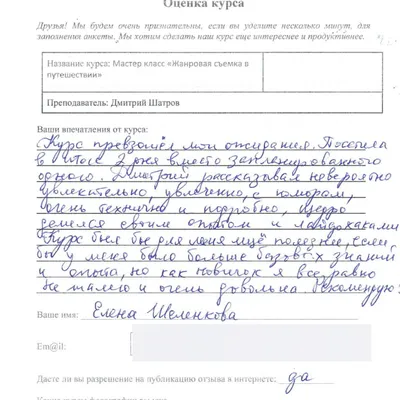 Оценка курса
Друзья! Мы будем очень признательны, если вы уделите несколько минут, для
заполнения анкеты. Мы хотим сделать наш курс еще интереснее и продуктивнее.
Название курса: Мастер класс «Жанровая съемка в
путешествии»
Преподаватель: Дмитрий Шатров
Ваши впечатления от курса:
Курс превзошёл мои ожидания. Посетила
в итоге 2 дня вместо запланированного
одного. Дмитрий рассказывал невероятно
увлекательно, увлеченно, с юмором,
очень технично и подробно, щедро
делился своим опытом и лайфхаками.
Курс был бы для меня ещё полезнее, если
бы у меня было больше базовых знаний
и опыта, но как новичок я всё равно
не жалею и очень довольна. Рекомендую!
Ваше имя: Елена Шеленкова
Em@il:
Даете ли вы разрешение на публикацию отзыва в интернете: да